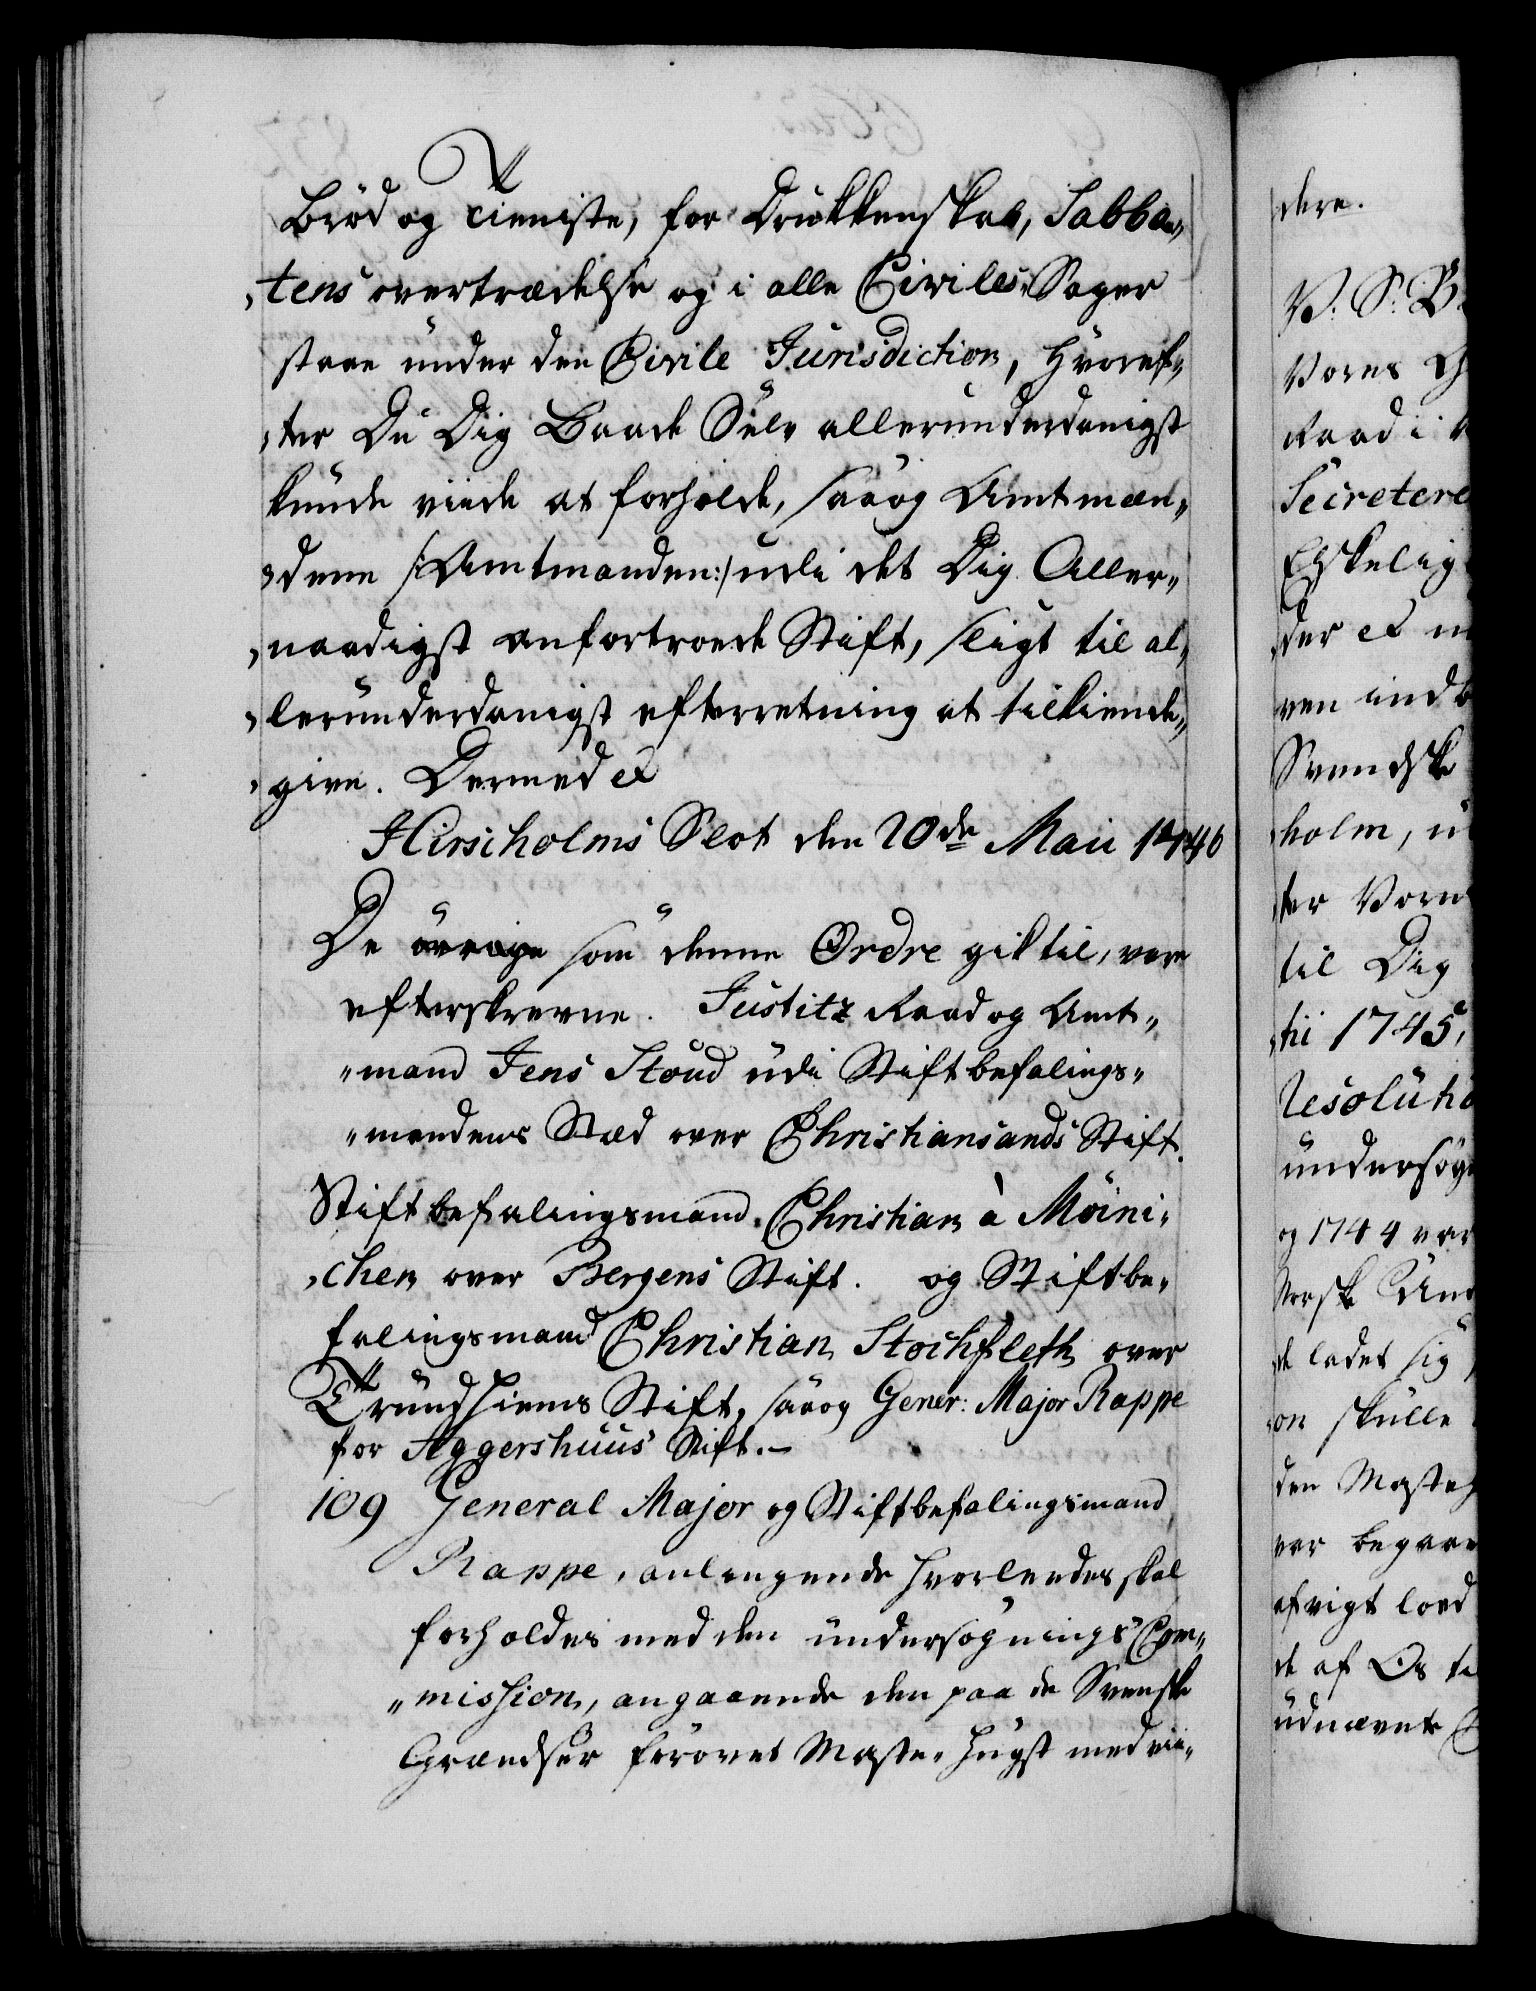 Bröd og Tieniste, for Drukkenskab, Sabba„
„tens overtrædelse og i alle Civiles Sager
staae under den Civile Jurisdiction, Hvoref„
„ter Du Dig Baade Selv allerunderdanigst
kunde viide at forholde, saa og Amtmæn„
„dene /:Amtmanden:/ udi det Dig Aller„
„naadigst anfortroede Stift, sligt til al„
„lerunderdanigst efterretning at tilkiende„
„give. Dermed etc
Hirscholms Slot den 20de Maii 1746
De övrige som denne Ordre gik til, vare
efterskrevne. Justitz Raad og Amt„
„mand Jens Stoud udi Stiftbefalings„
„mandens Stæd over Christiansands Stift.
Stiftbefalingsmand Christian à Möini„
„chen over Bergens Stift. og Stiftbe„
falingsmand Christian Stochfleth over
Trundhiems Stift, saa og Gener: Major Rappe
for Aggershuus Stift.—
109 General Major og Stiftbefalingsmand
Rappe, anlangende hvorleedes skal
forholdes med den undersögnings Com„
„mission, angaaende den paa de Svenske
Grændser forövet Maste-Hugst med vii„
dere.
V. S. B.
Vores
Raad i
Secretere
Elskelig
der et
ven ind
Svendske
holm, u
ter Vores
til Dig
tii 1745,
Resolutio
undersöge
og 1744 var
Norsk
de ladet sig
on skulle
den Maste
var begaae
afvigt
de af Os
udnævnte